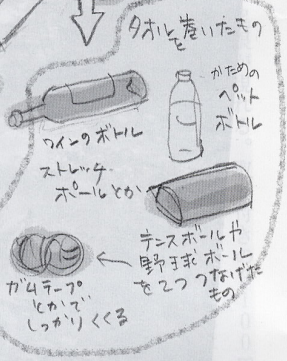 タオルを巻いたもの
かための
ペット
ボトル
ワインのボトル
ストレッチ
ポールとか
テニスボールや
野球ボール
を2つつなげた
もの
ガムテープ
とかで
しっかりくくる